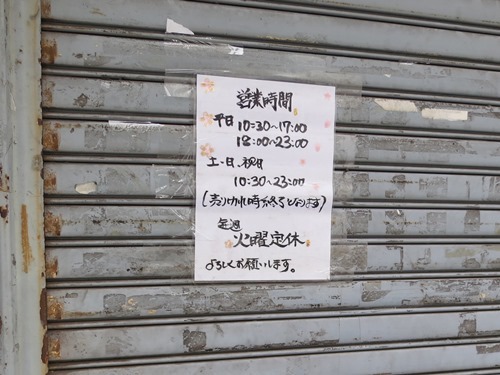 営業時間
平日 10:30〜17:00
18:00〜23:00
土・日、祝日
10:30〜23:00
(売り切れ時が終るとなります)
毎週
火曜定休
よろしくお願いします。